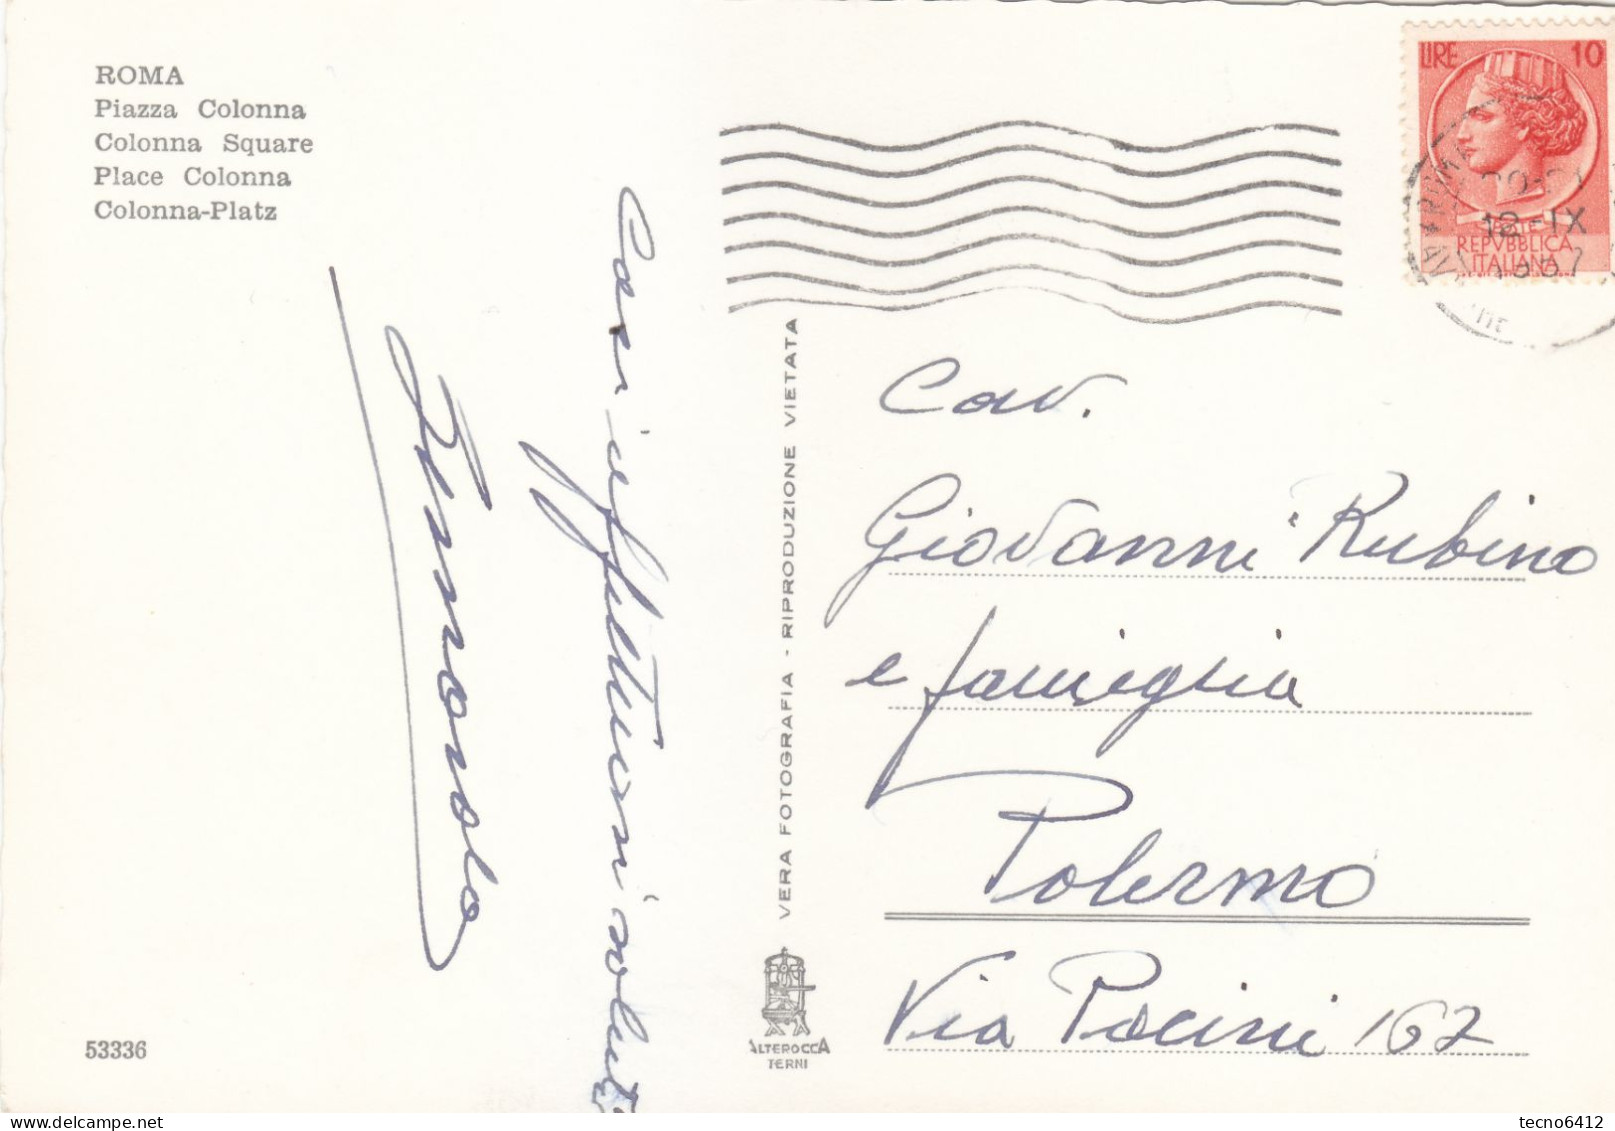 ROMA
Piazza Colonna
Colonna Square
Place Colonna
Colonna-Platz
LIRE 10
12-IX
REPVBBLICA
ITALIANA
Cari e affettuosi saluti
VERA FOTOGRAFIA - RIPRODUZIONE VIETATA
Cav.
Giovanni Rubino
e famiglia
Palermo
Via Pacini 167
ALTEROCCA
TERNI
53336
tecno6412